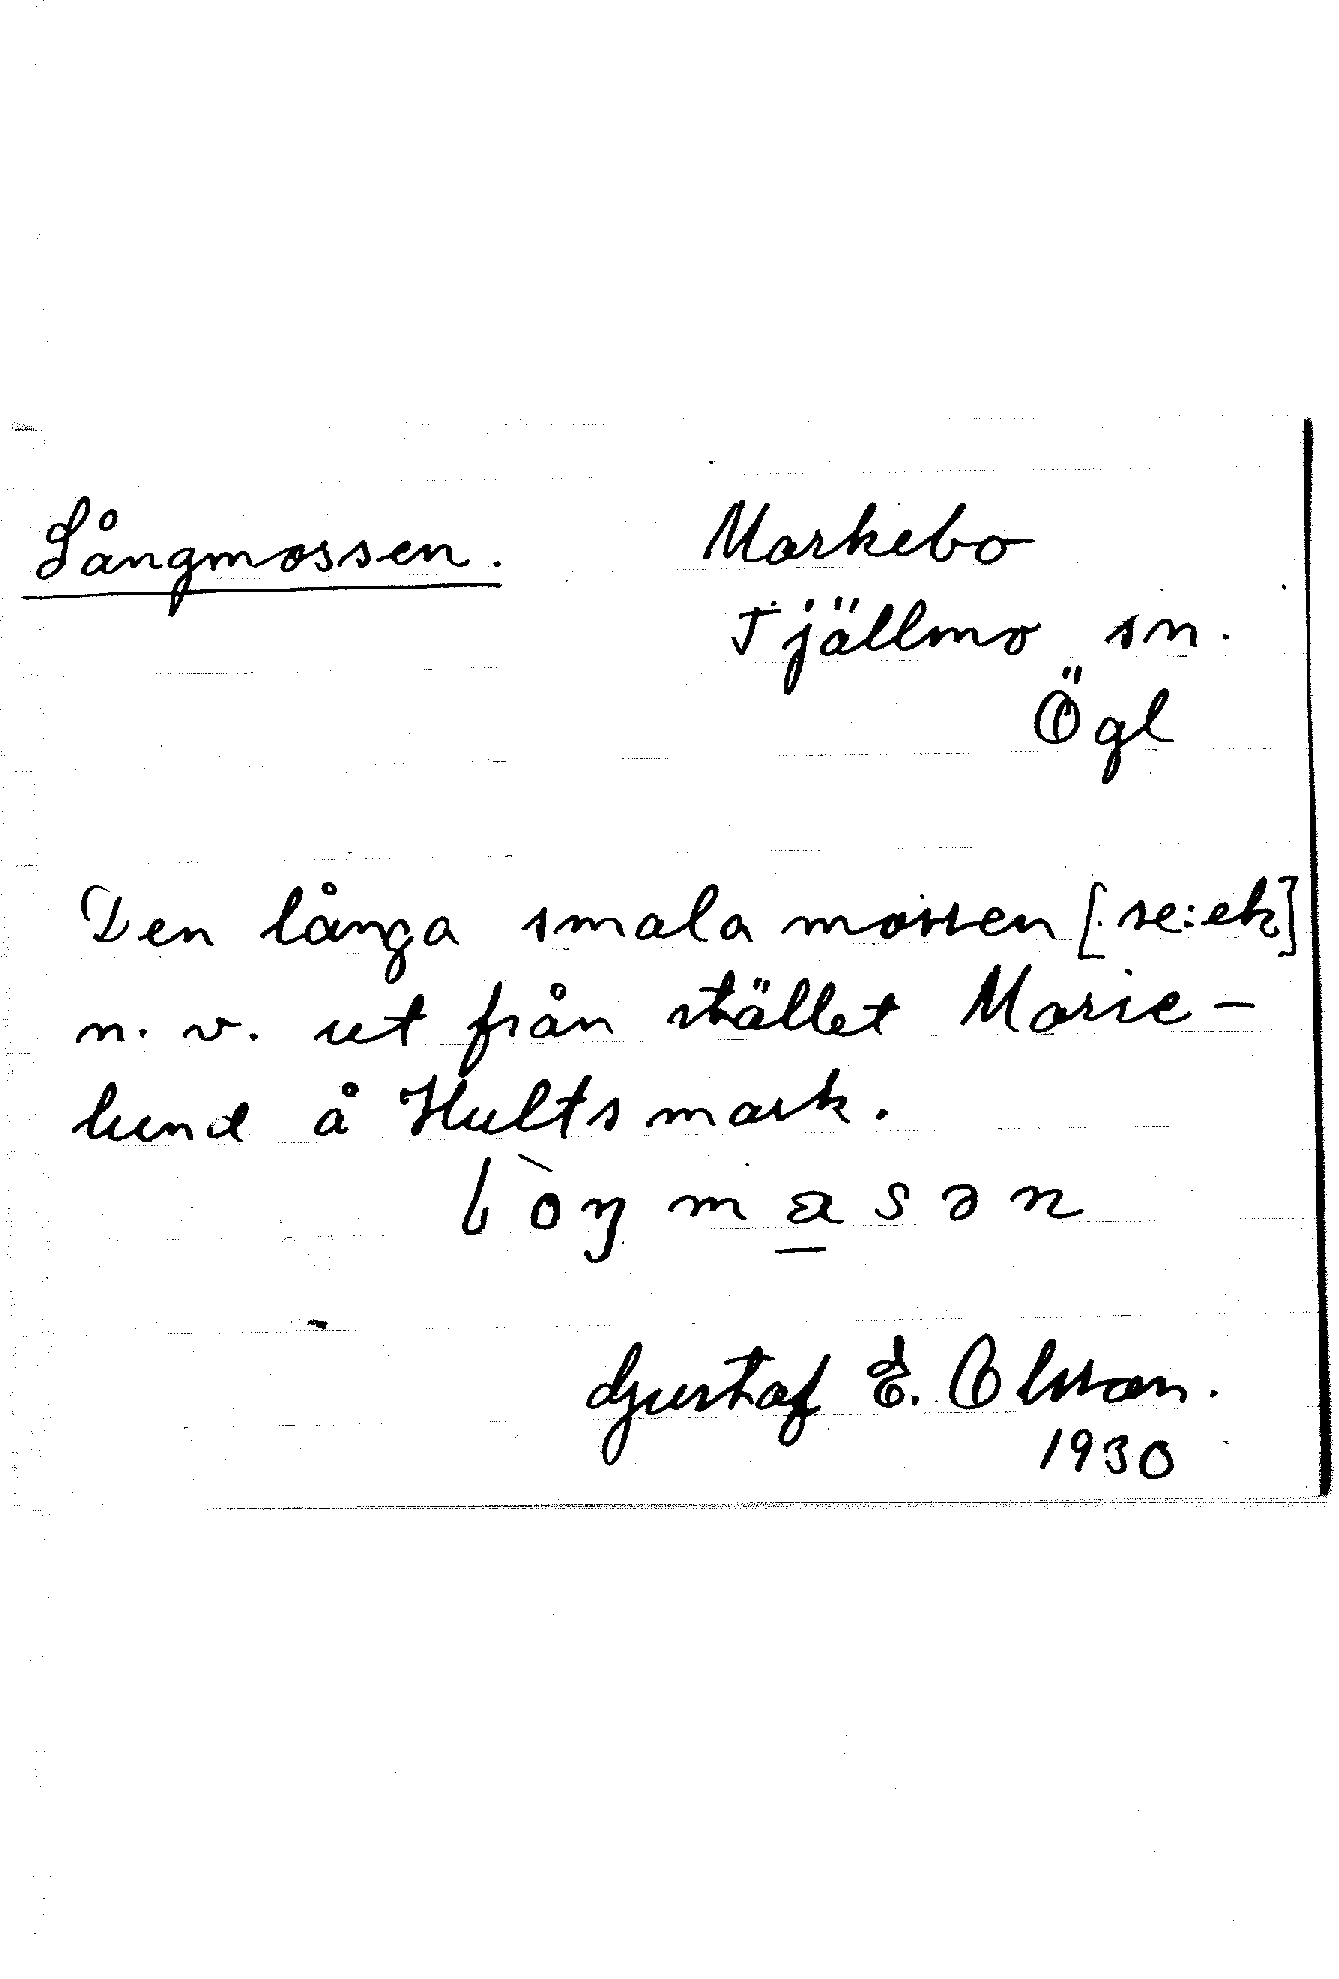 Långmossen.
Markebo
Tjällmo sn.
Ögl
Den långa smala mossen [se: ek]
n. v. ut från stället Marie-
lund å Hultsmark.
lòŋmasən
Gustaf E. Olsson.
1930